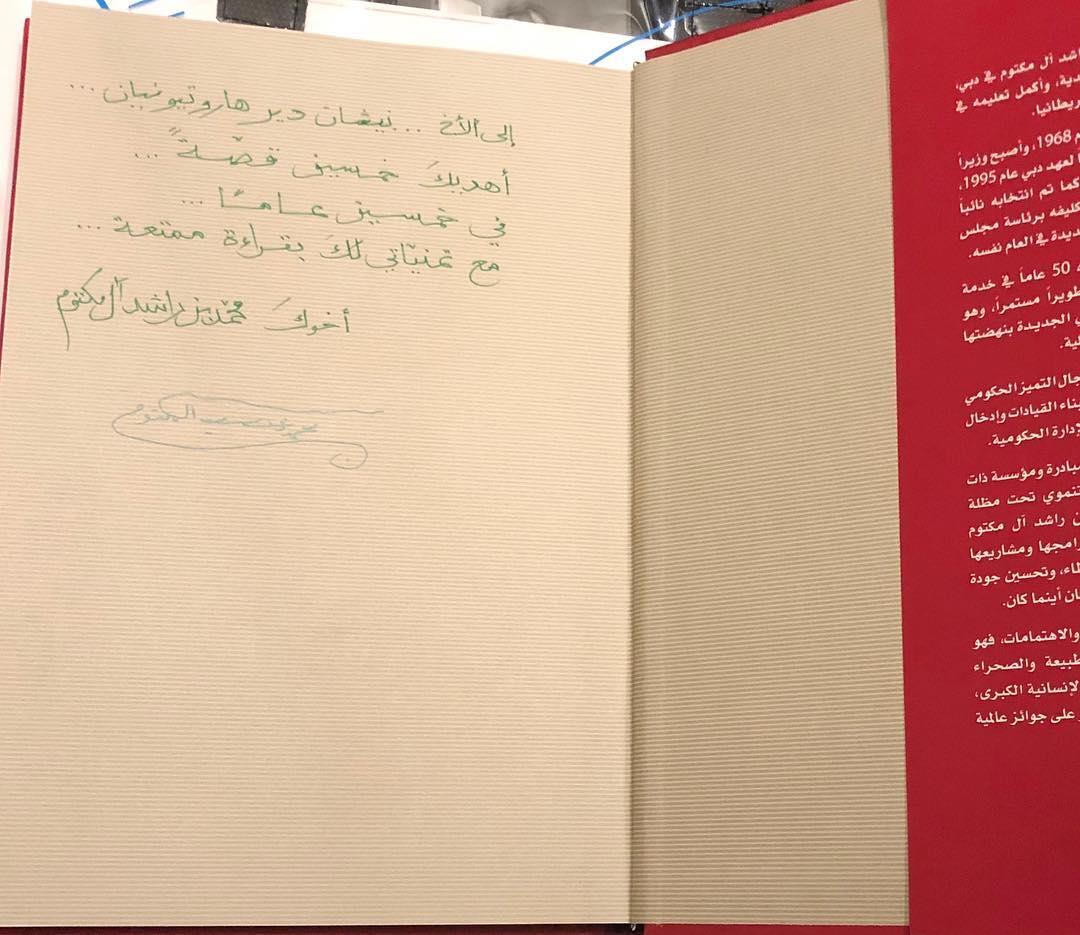 إلى الأخ ... نيشان دير هاروتيونيان ...
أهديكَ خمسين قصّـةً ...
في خمسين عـامـًا ...
مع تمنيّاتي لكَ بقراءة ممتعة ...
أخوكَ محمد بن راشد آل مكتوم
راشد آل مكتوم في دبي،
وأكمل تعليمه في
بريطانيا.
1968، وأصبح وزيراً
لعهد دبي عام 1995،
كما تم انتخابه نائباً
تكليفه برئاسة مجلس
في العام نفسه.
50 عاماً في خدمة
تطويراً مستمراً، وهو
الجديدة بنهضتها
مجال التميز الحكومي
بناء القيادات وإدخال
الإدارة الحكومية.
مبادرة ومؤسسة ذات
تنموي تحت مظلة
بن راشد آل مكتوم
برامجها ومشاريعها
وتحسين جودة
أينما كان.
والاهتمامات، فهو
الطبيعة والصحراء
الإنسانية الكبرى،
على جوائز عالمية